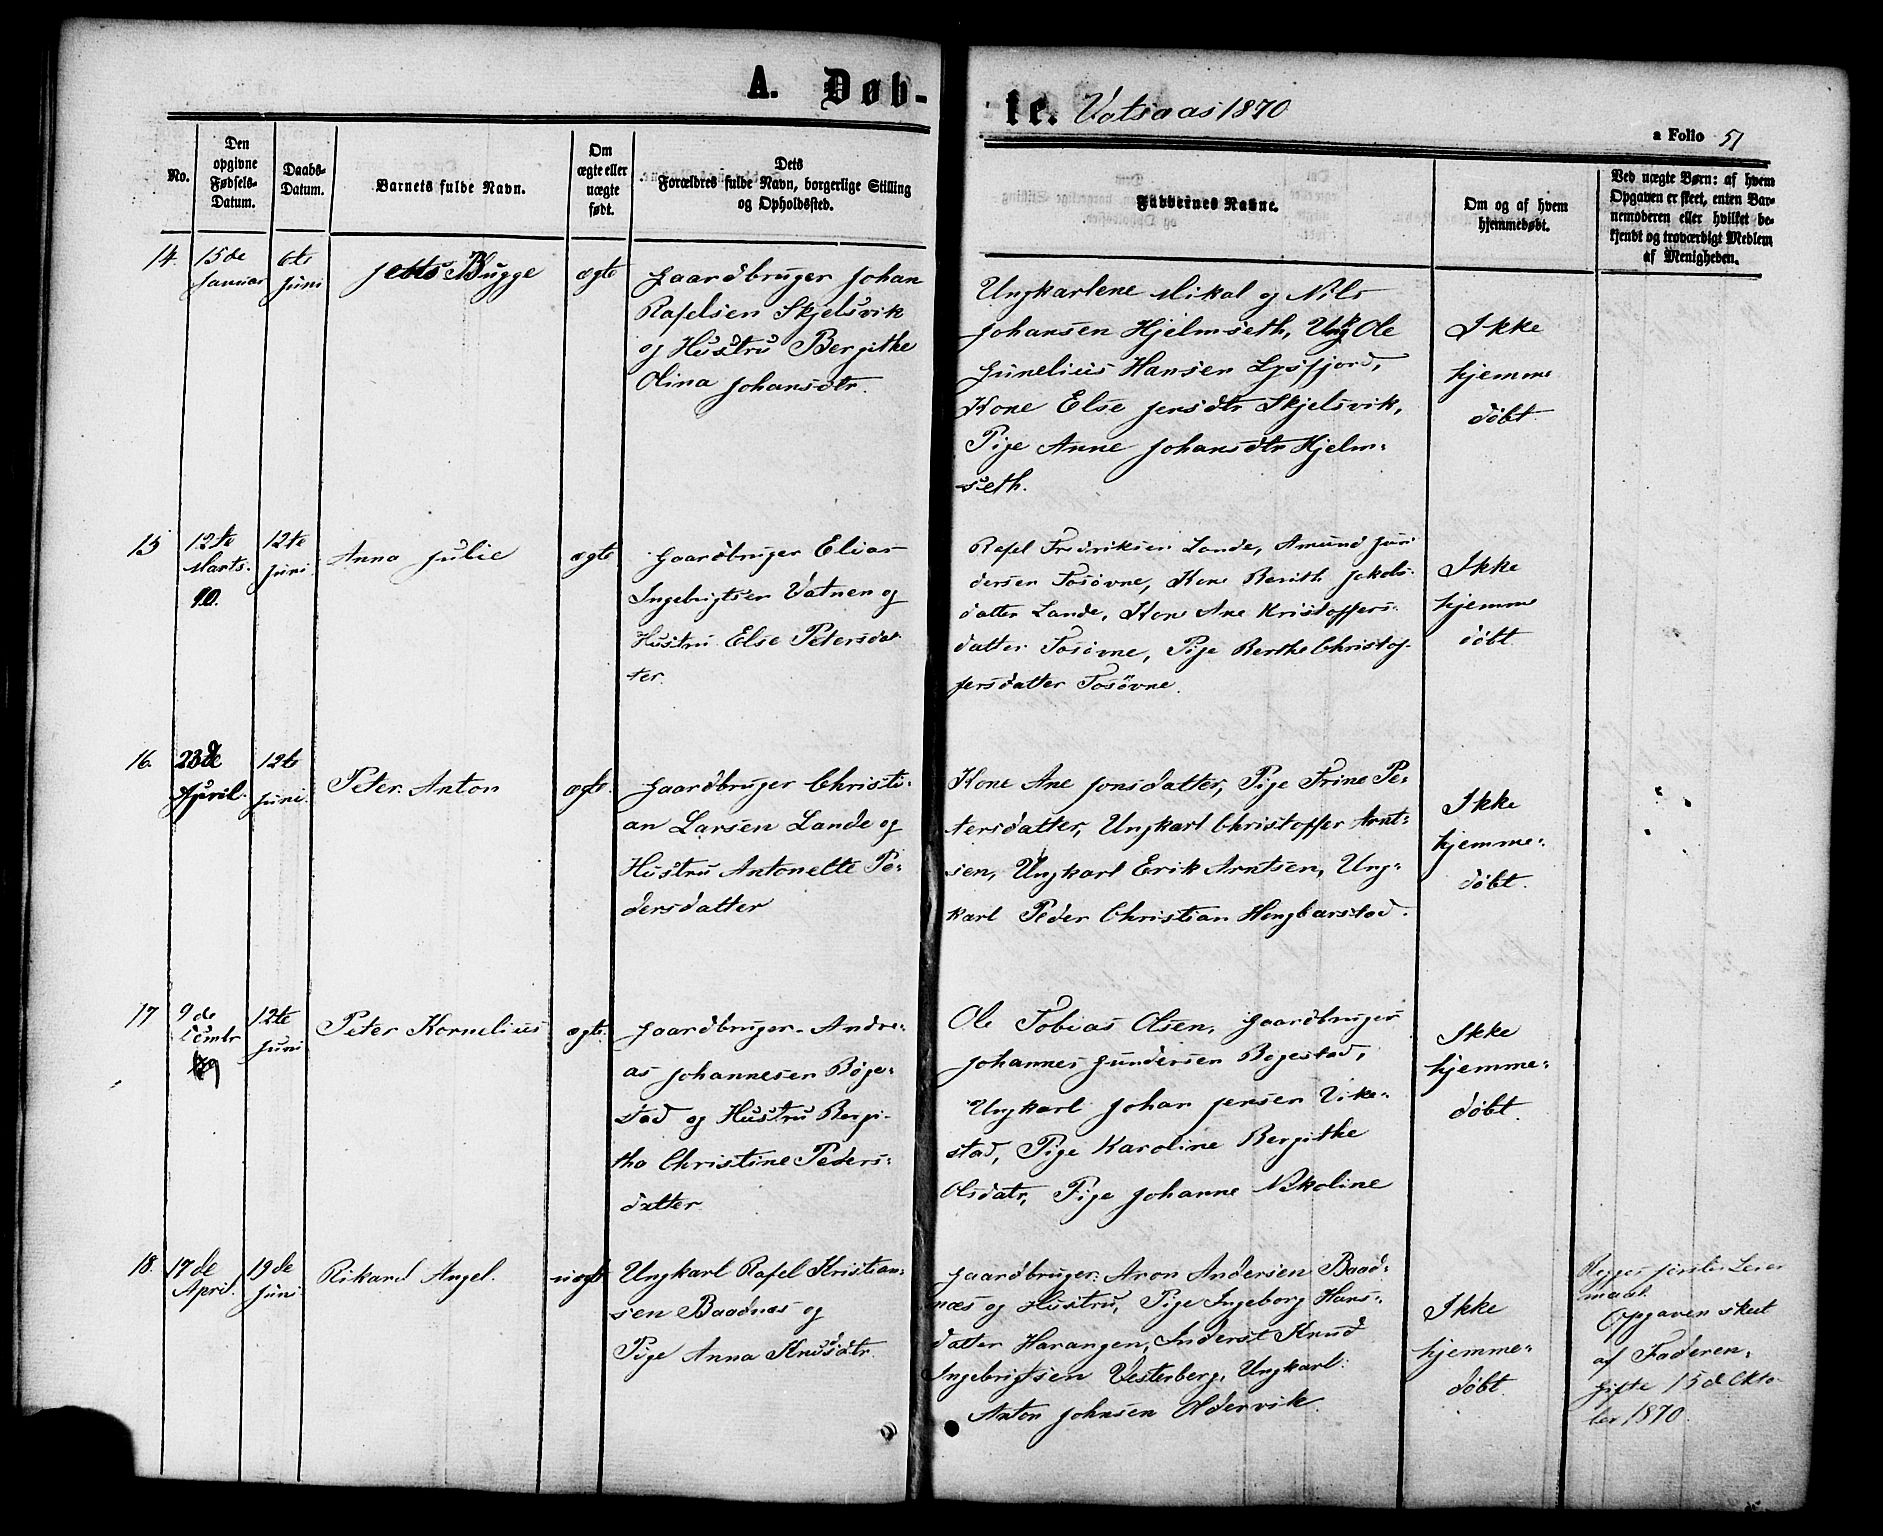 A. Døb-
te. Vatsaas 1870
a Folio 51
No.
Den
opgivne
Fødsels-
Datum.
Daabs-
Datum.
Barnets fulde Navn.
Om
ægte eller
uægte
født.
Dets
Forældres fulde Navn, borgerlige Stilling
og Opholdssted.
Faddernes Navne.
Om og af hvem
hjemmedøbt.
Ved uægte Børn: af hvem
Opgaven er skeet, enten Bar-
nemoderen eller hvilket be-
kjendt og troværdigt Medlem
af Menigheden.
14.
15de
Januar
6te
Juni
Bugge
ægte
Gaardbruger Johan
Rafelsen Skjelsvik
og Hustru Bergithe
Olina Johansdtr.
Ungkarlene Mikal og Nils
Johansen Hjelmseth, Ungk Ole
Hansen Lysfjord,
Kone Else Jensdtr Skjelsvik,
Pige Anne Johansdtr Hjelm-
seth.
Ikke
hjemme
døbt
15
12te
Marts
70.
12te
Juni
Anna Julie
ægte
Gaardbruger Elias
Ingebrigtsen Vatnen og
Hustru Else Petersdat
ter.
Rafel Fredriksen Lande, Amund Gun
dersen Tosövne, Kone Berith Jakobs-
datter Lande, Kone Ane Kristoffers-
datter Tosövne, Pige Berthe Christof-
fersdatter Tosövne.
Ikke
hjemme
döbt
16.
23de
April.
12te
Juni.
Peter Anton
ægte.
Gaardbruger Christi-
an Larsen Lande og
Hustru Antonette Pe-
dersdatter
Kone Ane Jonsdatter, Pige Trine Pe-
tersdatter, Ungkarl Christoffer Arnt-
sen, Ungkarl Erik Arntsen, Ung-
karl Peder Christian
Ikke
hjemme-
döbt.
17
9de
12te
Juni
Peter Kornelius
ægte.
Gaardbruger Andre-
as Johannesen Böge-
stad og Hustru Bergi-
tha Christine Peders-
datter
Ole Tobias Olsen, Gaardbruger
Johannes Gundersen Bogestad,
Ungkarl Johan Jensen Vike-
stad, Pige Karoline Bergithe
Olsdatr, Pige Johanne Nikoline
Ikke
hjemme-
døbt.
18.
17de
April.
19de
Juni
Rikard Angel.
uægte
Ungkarl Rafel Kristian-
sen Baadnæs og
Pige Anna Knudsdtr.
Gaardbruger Aron Andersen Baad-
næs og Hustru, Pige Ingeborg Hans-
datter Harangen, Inderst Knud
Ingebrigtsen Vesterberg, Ungkarl
Anton Johnsen Oldervik.
Ikke
hjemme-
døbt.
Begges første Leier
maal.
Opgaven skeet
af Faderen.
Gifte 15de Okto-
ber 1870.